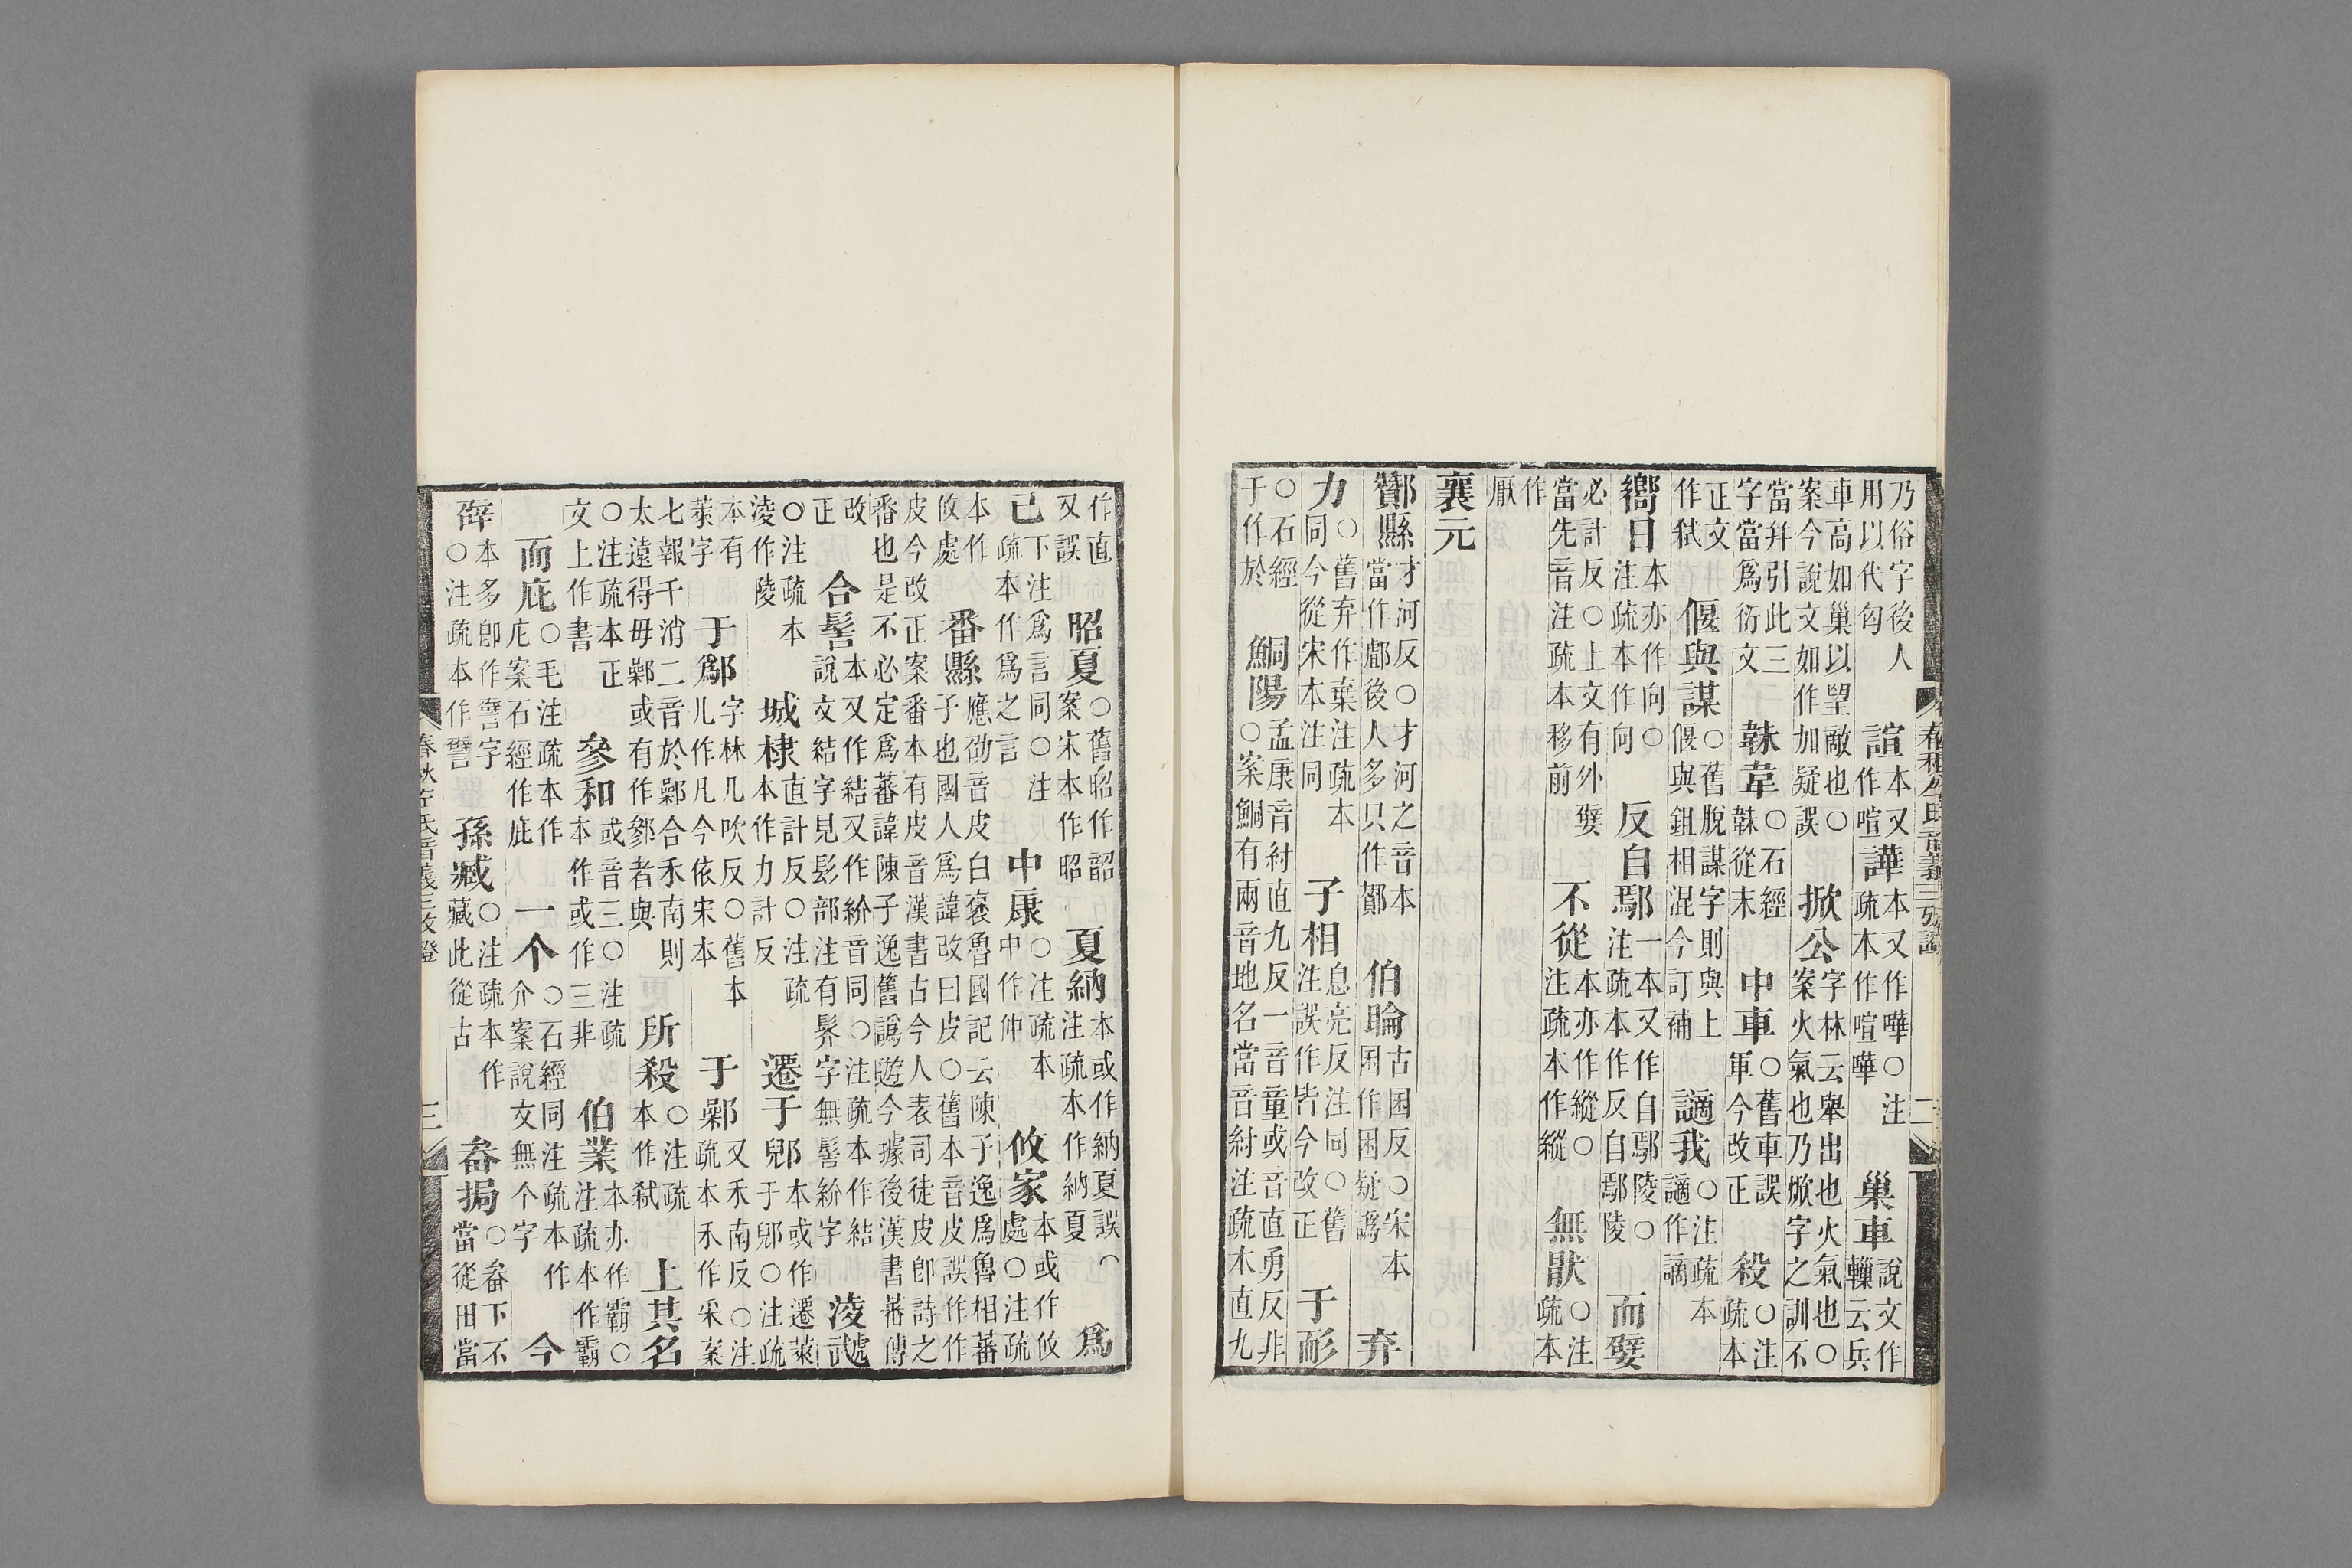 乃俗字後人用以代匈 諠本又作喧譁本又作嘩○注疏本作喧嘩 巢車說文作轈云兵
車高如巢以朢敵也○案今說文如作加疑誤 掀公字林云舉出也火氣也○案火氣也乃焮字之訓不
當幷引此三字當爲衍文 韎韋○石經韎從末 中車○舊車誤軍今改正 殺○注疏本
正文作弒 偃與謀○舊脫謀字則與上偃與鉏相混今訂補 讁我○注疏本讁作謫
嚮日本亦作向○注疏本作向 反自鄢一本又作自鄢陵○注疏本作反自鄢陵 而嬖
必計反○上文有外嬖當先音注疏本移前 不從本亦作縱○注疏本作縱 無猒○注疏本
作厭
襄元
酇縣才河反○才河之音本當作酂後人多只作酇 伯睔古囷反○宋本囷作困疑譌 弃
力○舊弃作棄注疏本同今從宋本注同 子相息亮反注同○舊注誤作皆今改正 于彭
○石經于作於 鮦陽孟康音紂直九反一音童或音直勇反非○案鮦有兩音地名當音紂注疏本直九
春秋左氏音義三攷證 二
作直又誤 昭夏○舊昭作韶案宋本作昭 夏納本或作納夏誤○注疏本作納夏 爲
已下注爲言同○注疏本作爲之言 中康○注疏本中作仲 攸家本或作攸處○注疏
本作攸處 番縣應劭音皮白裒魯國記云陳子逸爲魯相蕃子也國人爲諱改曰皮○舊本音皮誤作作
皮今改正案番本有皮音漢書古今人表司徒皮卽詩之番也是不必定爲蕃諱陳子逸舊譌遊今據後漢書蕃傳
改正 合髻本又作結又作紒音同○注疏本作結說文結字見髟部注有髤字無髻紒字 淩虣
○注疏本淩作陵 城棣直計反○注疏本作力計反 遷于郳本或作遷萊于郳○注疏
本有萊字 于鄬字林几吹反○舊本儿作凡今依宋本 于鄵又禾南反○注疏本禾作采案
七報千消二音於鄵合禾南則太遠得毋鄵或有作鄝者與 所殺○注疏本作弒 上其名
○注疏本正文上作書 參和本或音三○注疏本作或作三非 伯業本办作霸○注疏本作霸
而庇○毛注疏本作庀案石經作庇 一个○石經同注疏本作介案說文無个字 今
辟本多卽作譬字○注疏本作譬 孫臧○注疏本作藏此從古 畚挶○畚下不當從田當
春秋左氏音義三攷證 三